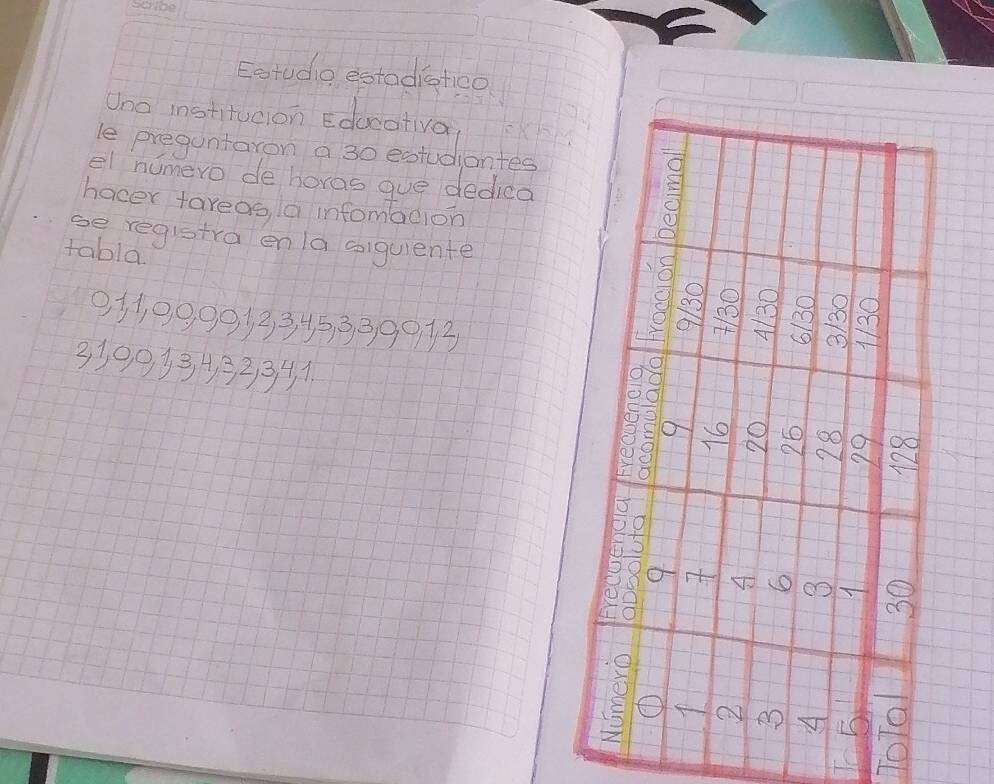 Scribe
Estudio estadístico
Una institución Educativa,
le preguntaron a 30 estudiantes
el número de horas que dedica
hacer tareas, la infomación
se registra en la siguiente
tabla.
0,1,1,0,0,0,0,1,2,3,4,5,3,3,0,0,1,2,
2,1,0,0,1,3,4,3,2,3,4,1.
Número Frecuencia absoluta Frecuencia acomulada Fracción Decimal
0 9 9 9/30
1 7 16 7/30
2 4 20 4/30
3 6 26 6/30
4 3 28 3/30
5 1 29 1/30
ToTal 30 128